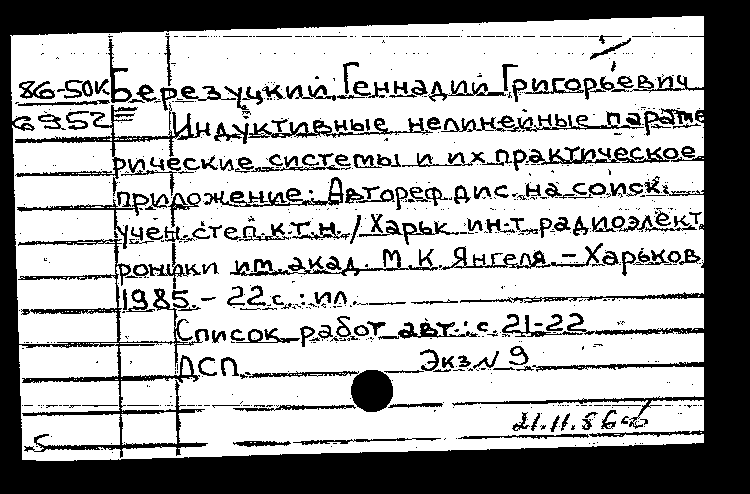 86-50к Березуцкий, Геннадий Григорьевич
6952 Индуктивные нелинейные параме
рические системы и их практическое
приложение: Автореф дис. на соиск.
учен. степ. к.т.н. / Харьк ин-т радиоэлект
роники им. акад. М.К Янгеля. – Харьков,
1985. – 22 с. : ил.
Список работ авт.: с. 21-22
ДСП. Экз N 9
21.11.86
5